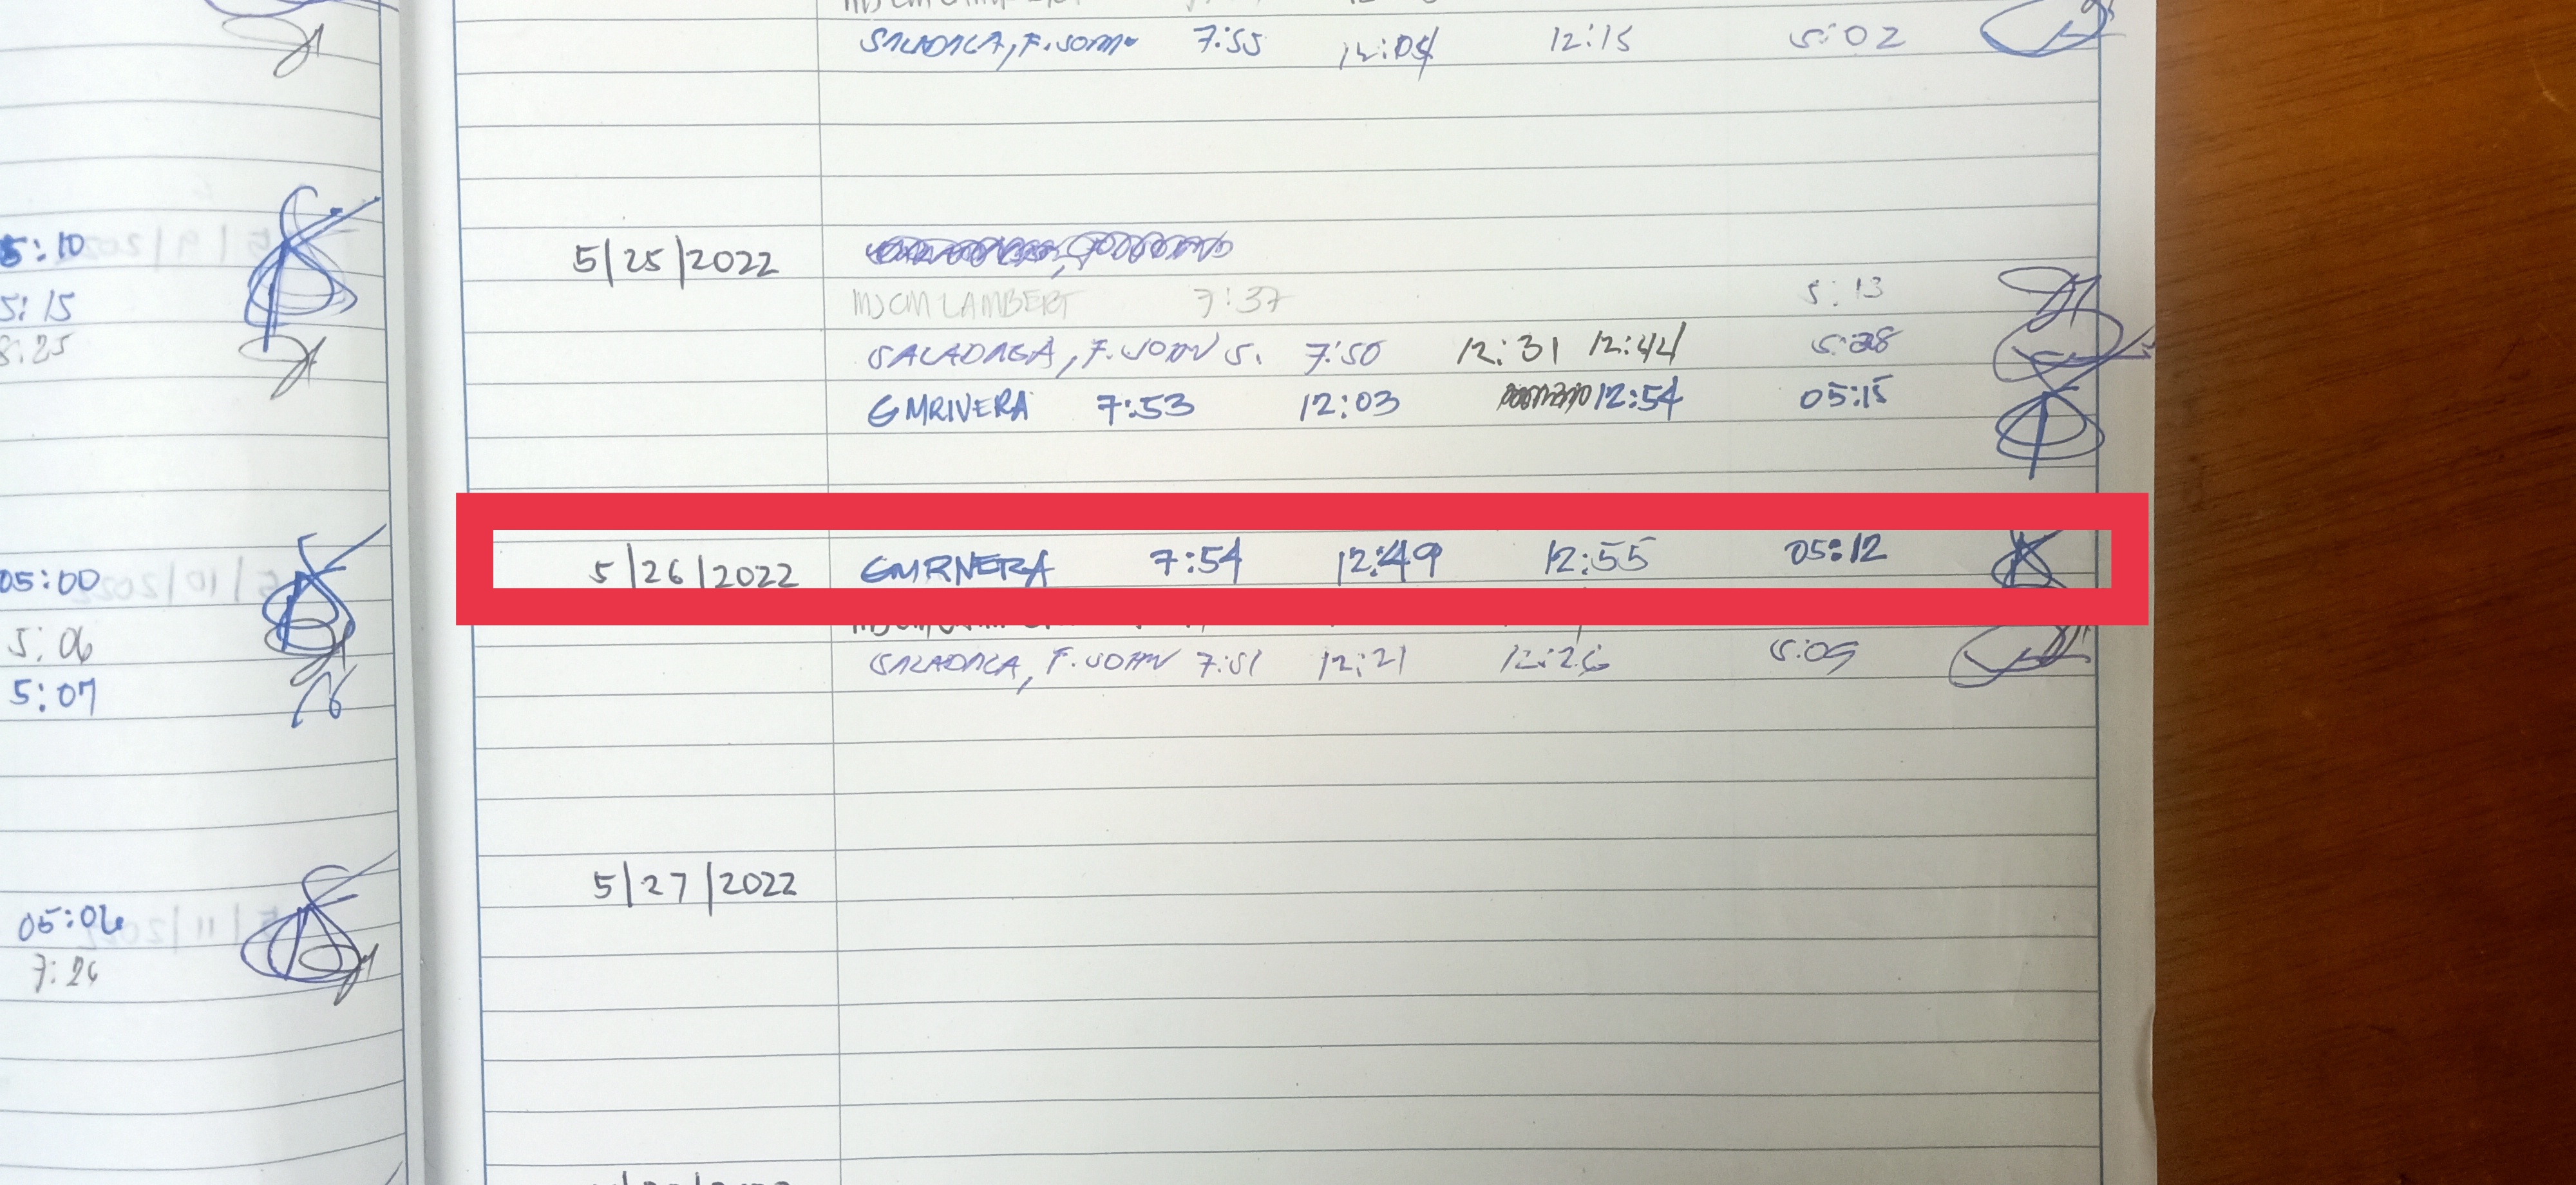 SALADAGA, F. JOHN 7:55 12:04 12:15 5:02
5:10
5:15
8:25
5/25/2022
MJCM LAMBERT 7:37 5:13
SALADAGA, F. JOHN S. 7:50 12:31 12:44 5:28
GMRIVERA 7:53 12:03 12:54 05:15
05:00
5:06
5:07
5/26/2022 GMRIVERA 7:54 12:49 12:55 05:12
SALADAGA, F. JOHN 7:51 12:21 12:26 5:09
05:06
7:26
5/27/2022